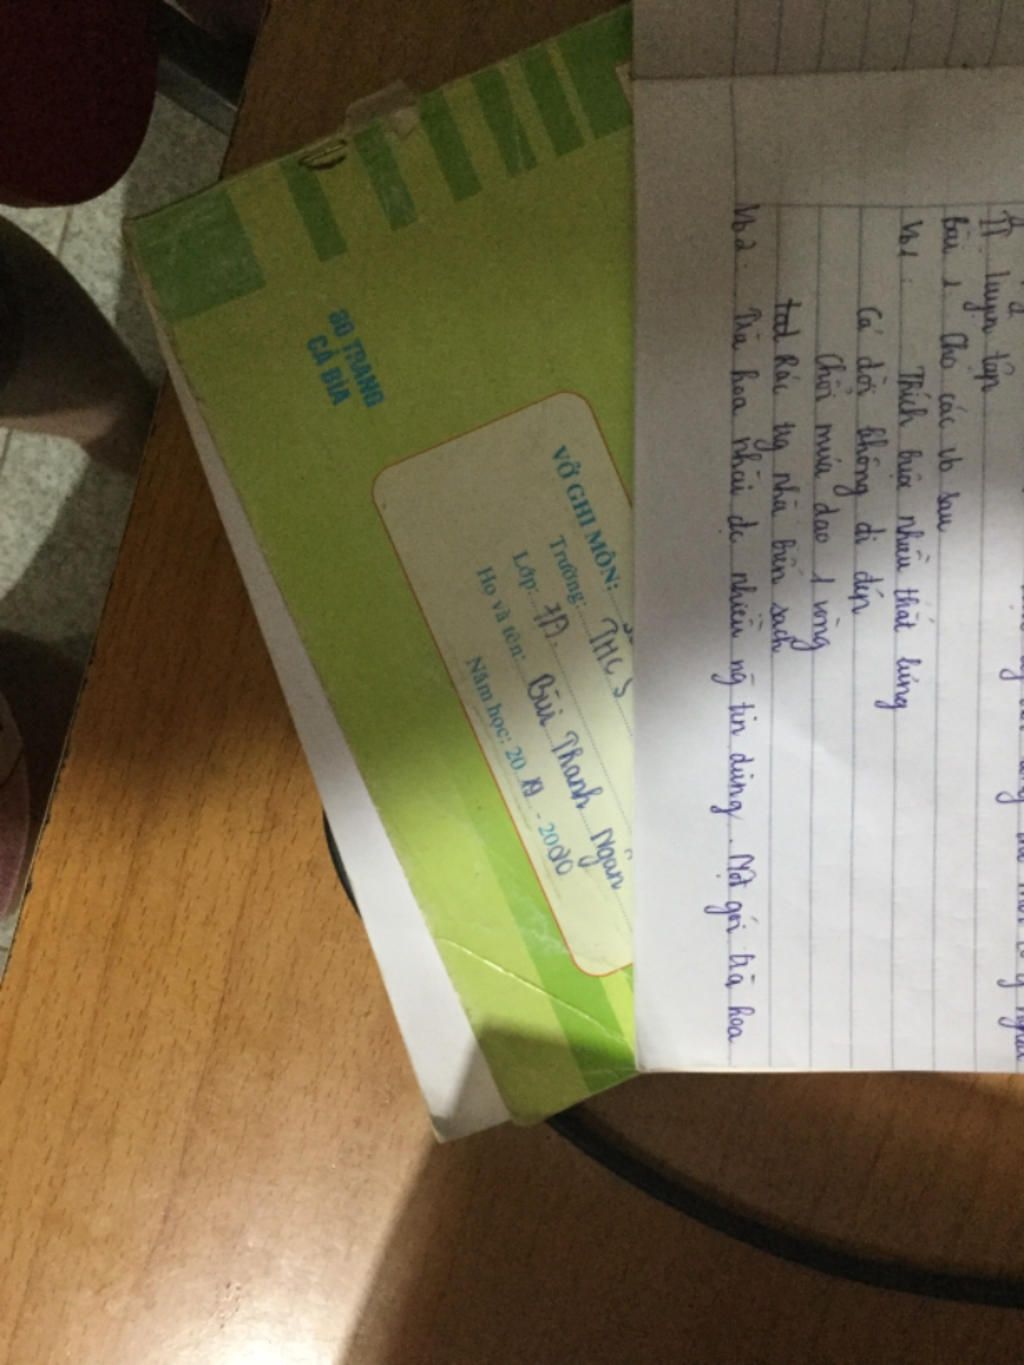 80 TRANG
CẢ BÌA
VỞ GHI MÔN:
Trường: THCS
Lớp: 7A
Họ và tên: Bùi Thanh Ngân
Năm học: 2019 - 2020
II luyện tập
Bài 1 Cho các vb sau
Vb1: Thích buộc nhiều thắt lưng
Cả đời không đi dép
Chổi múa dao 1 vòng
Rác ng nhà bên sạch
Vb2: Trà hoa nhài đc nhiều ng tin dùng. Một gói trà hoa